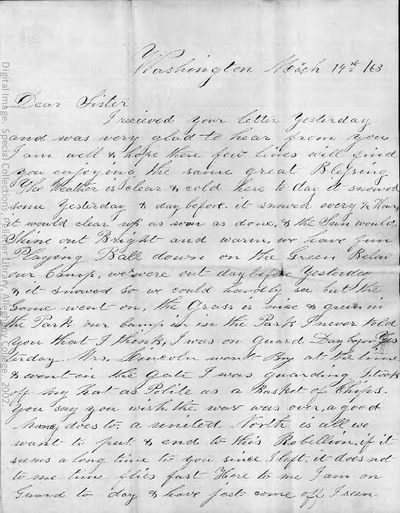 Washington March 14th /63
Dear Sister
I recieved your letter Yesterday
and was very glad to hear from you
I am well & hope these few lines will find
you enjoying the same great Blessing
The Weather is clear & cold here to day it snowed
some Yesterday & day before it snowed every
it would clear up as soon as done, & the Sun would
Shine out Bright and warm, we have fun
Playing Ball down on the Green Below
our Camp, we were out day before Yesterday
& it snowed so we could hardly see but the
Game went on, the Grass is nice & green in
the Park our camp is in the Park I never told
you that I think, I was on Guard Day before Yes
terday Mrs. Lincoln went By at the time
& went in the Gate I was guarding I took
off my hat as Polite as a Basket of Chips.
You say you wish the war was over, a good
many does to. a united North is all we
want to put & end to this Rebellion. if it
seems a long time to you since I left. it does not
to me. time flies fast Here to me I am on
Guard to day & have just come off. I seen
Digital Image, Special Collections, Pelletier Library, Allegheny College, 200